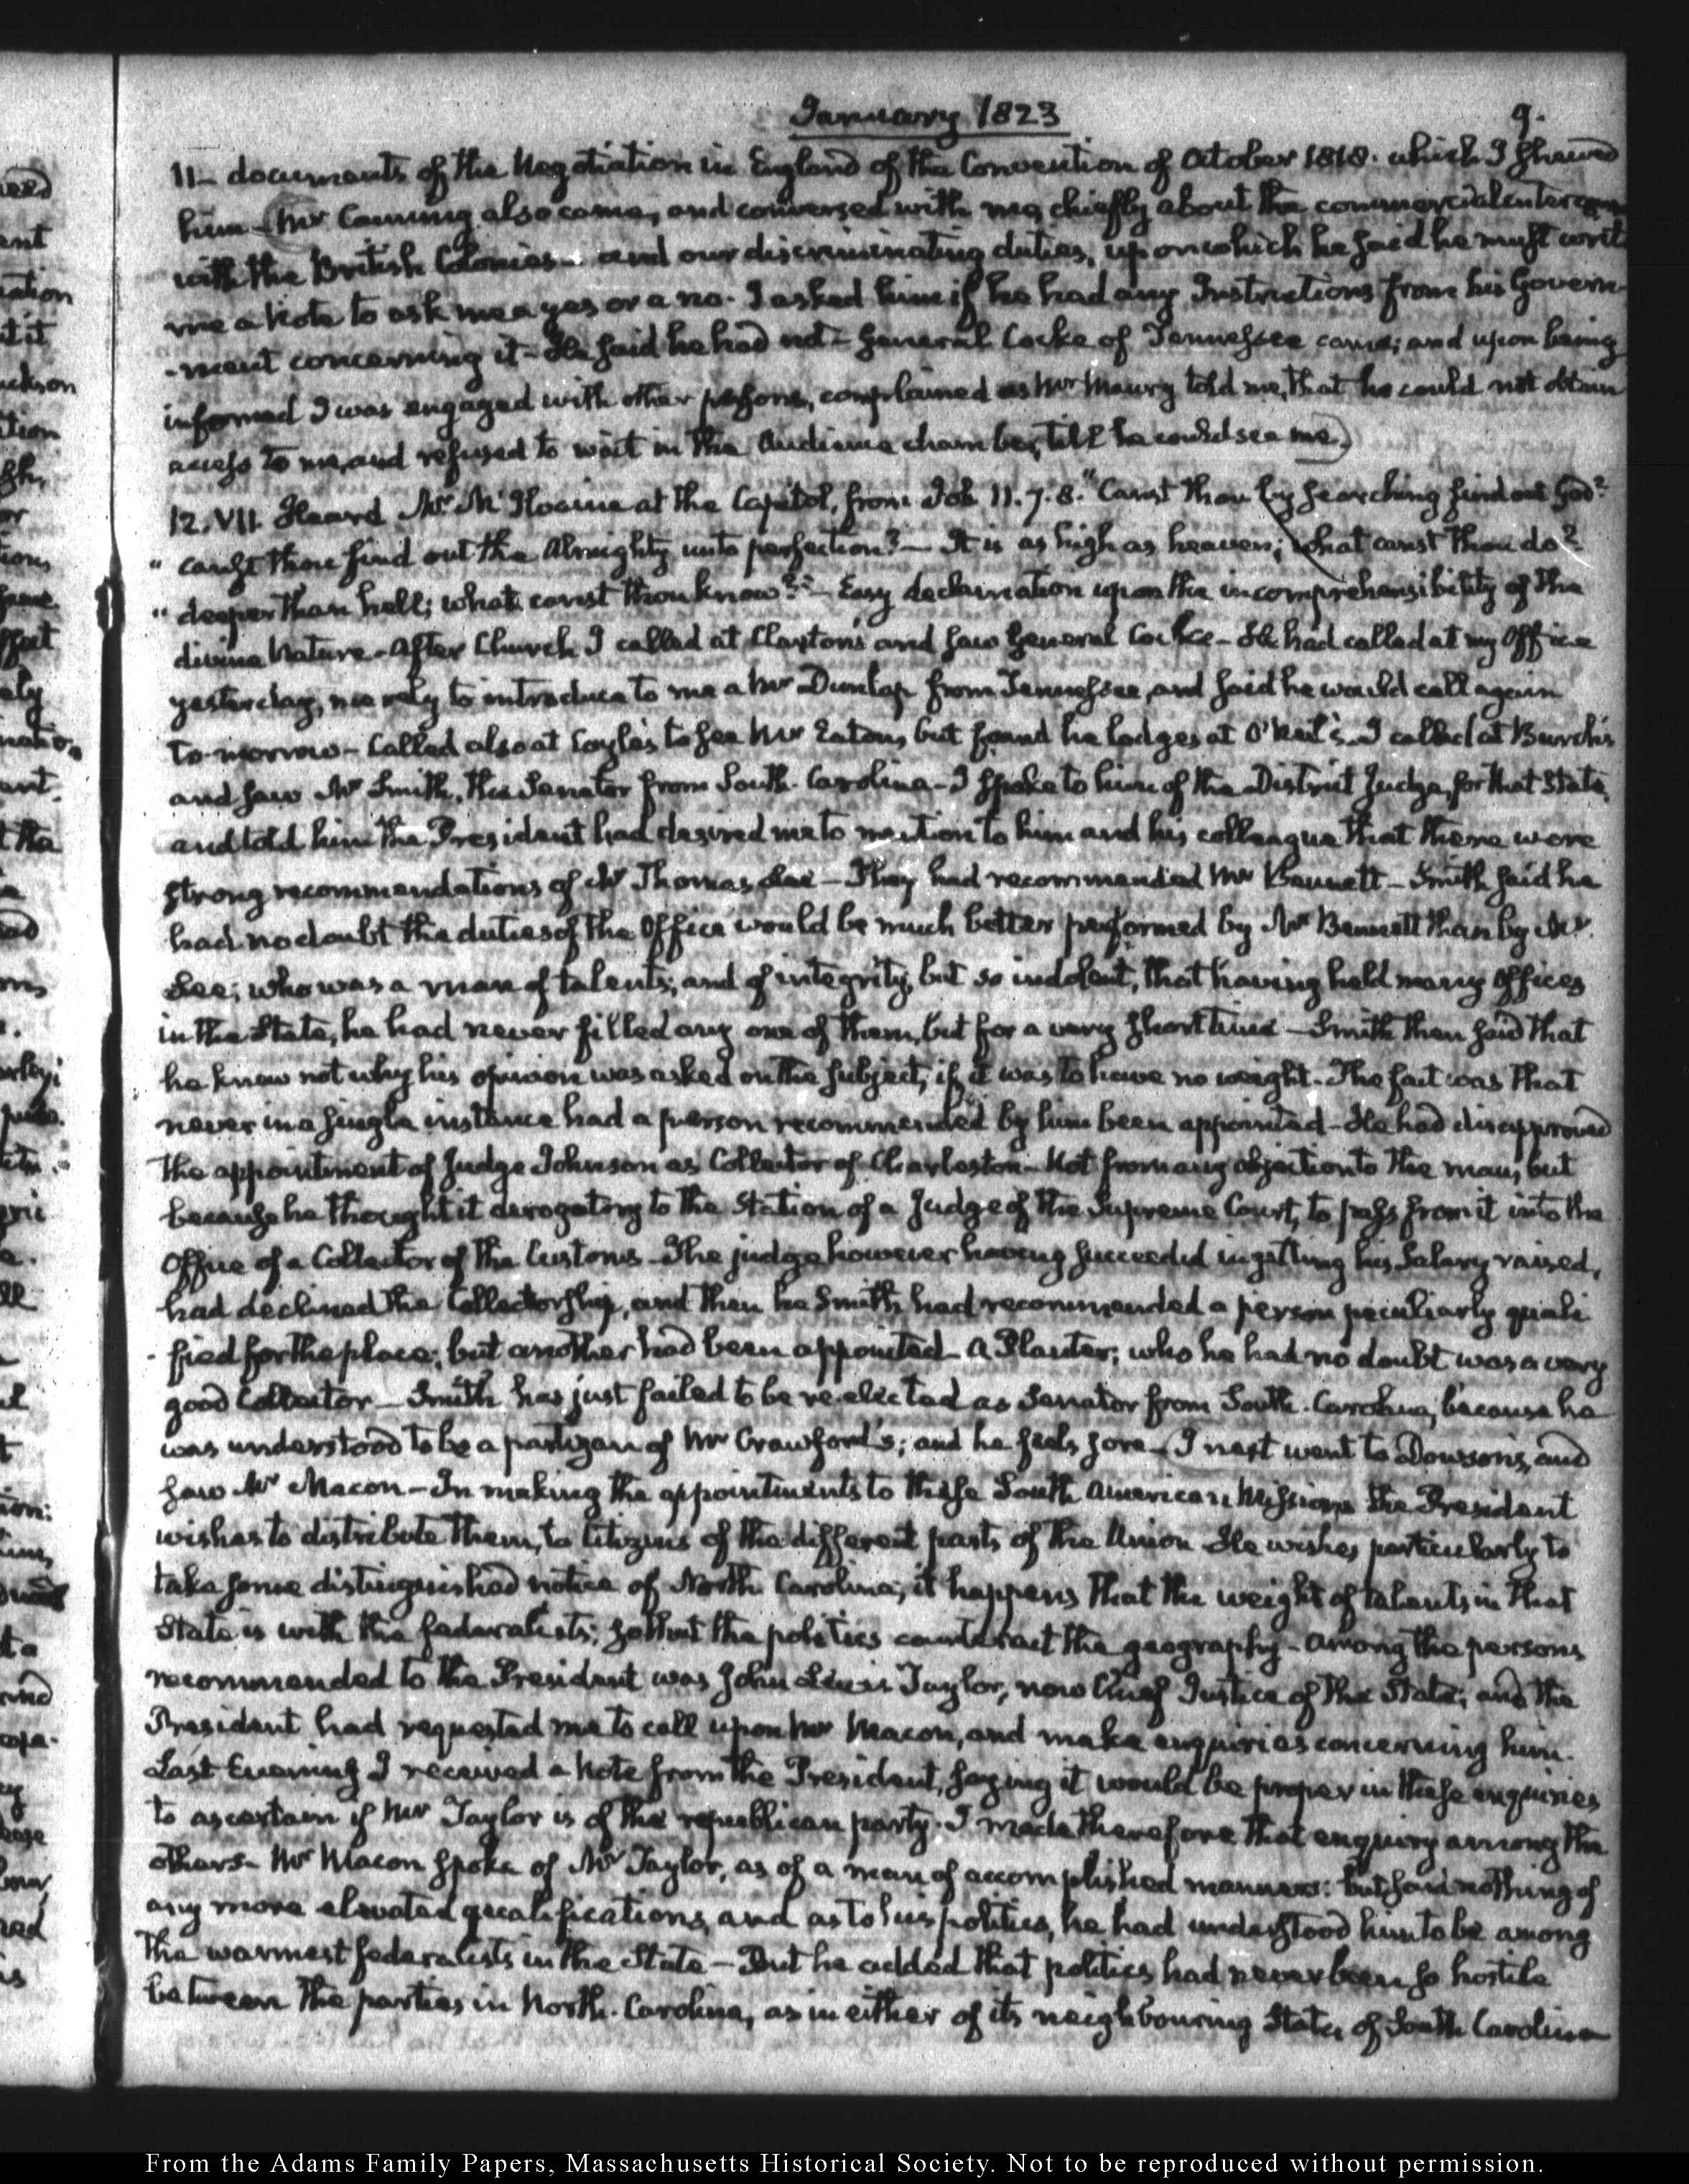 January 1823
9.
11— documents of the Negotiation in England of the Convention of October 1818. which I shewed
him— Mr Canning also came, and conversed with me, chiefly about the commercial intercourse
with the British Colonies— and our discriminating duties, upon which he said he must write
me a Note to ask me a yes or a no. I asked him if he had any Instructions from his Govern-
-ment concerning it— He said he had not— General Cocke of Tennessee came; and upon being
informed I was engaged with other persons, complained as Mr Maury told me, that he could not obtain
access to me, and refused to wait in the Audience chamber, till he could see me.
12. VII. Heard Mr McIlvaine at the Capitol, from Job 11. 7. 8. "Canst thou by searching find out God?
" canst thou find out the Almighty unto perfection?— It is as high as heaven; what canst thou do?
" deeper than hell; what canst thou know?"— Easy declamation upon the incomprehensibility of the
divine Nature— After Church I called at Claxton's and saw General Cocke— He had called at my Office
yesterday, merely to introduce to me a Mr Dunlap from Tennessee, and said he would call again
to-morrow— Called also at Coyle's to see Mr Eaton, but found he lodges at O'Neil's. I called at Burch's
and saw Mr Smith, the Senator from South-Carolina— I spoke to him of the District Judge for that State,
and told him the President had desired me to mention to him and his colleague that there were
strong recommendations of Mr Thomas Lee— They had recommended Mr Bennett— Smith said he
had no doubt the duties of the Office would be much better performed by Mr Bennett than by Mr
Lee; who was a man of talents, and of integrity, but so indolent, that having held many Offices
in the State, he had never filled any one of them, but for a very short time— Smith then said that
he knew not why his opinion was asked on the subject, if it was to have no weight. The fact was that
never in a single instance had a person recommended by him been appointed— He had disapproved
the appointment of Judge Johnson as Collector of Charleston— Not from any objection to the man, but
because he thought it derogatory to the Station of a Judge of the Supreme Court, to pass from it into the
Office of a Collector of the Customs— The judge however having succeeded in getting his Salary raised,
had declined the Collectorship, and then he Smith had recommended a person peculiarly quali
-fied for the place; but another had been appointed— A Planter; who he had no doubt was a very
good Collector— Smith has just failed to be re-elected as Senator from South-Carolina, because he
was understood to be a partizan of Mr Crawford's; and he feels sore— I next went to Dowson's, and
saw Mr Macon— In making the appointments to these South American Missions the President
wishes to distribute them, to Citizens of the different parts of the Union. He wishes particularly to
take some distinguished notice of North Carolina; it happens that the weight of talents in that
State is with the federalists; so that the politics counteract the geography— Among the persons
recommended to the President was John Lewis Taylor, now Chief Justice of the State; and the
President had requested me to call upon Mr Macon, and make enquiries concerning him.
Last Evening I received a Note from the President, saying it would be proper in these enquiries
to ascertain if Mr Taylor is of the republican party. I made therefore that enquiry among the
others— Mr Macon spoke of Mr Taylor, as of a man of accomplished manners: but said nothing of
any more elevated qualifications, and as to his politics, he had understood him to be among
the warmest federalists in the State— But he added that politics had never been so hostile
between the parties in North-Carolina, as in either of its neighbouring States of South Carolina
From the Adams Family Papers, Massachusetts Historical Society. Not to be reproduced without permission.